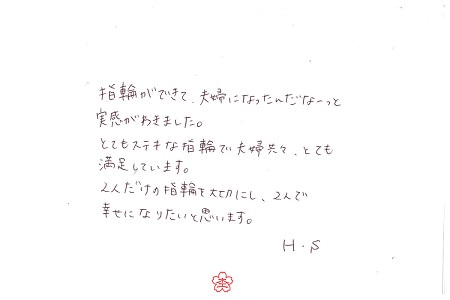 指輪ができて、夫婦になったんだなーっと
実感がわきました。
とてもステキな指輪で夫婦共々、とても
満足しています。
2人だけの指輪を大切にし、2人で
幸せになりたいと思います。
H.S